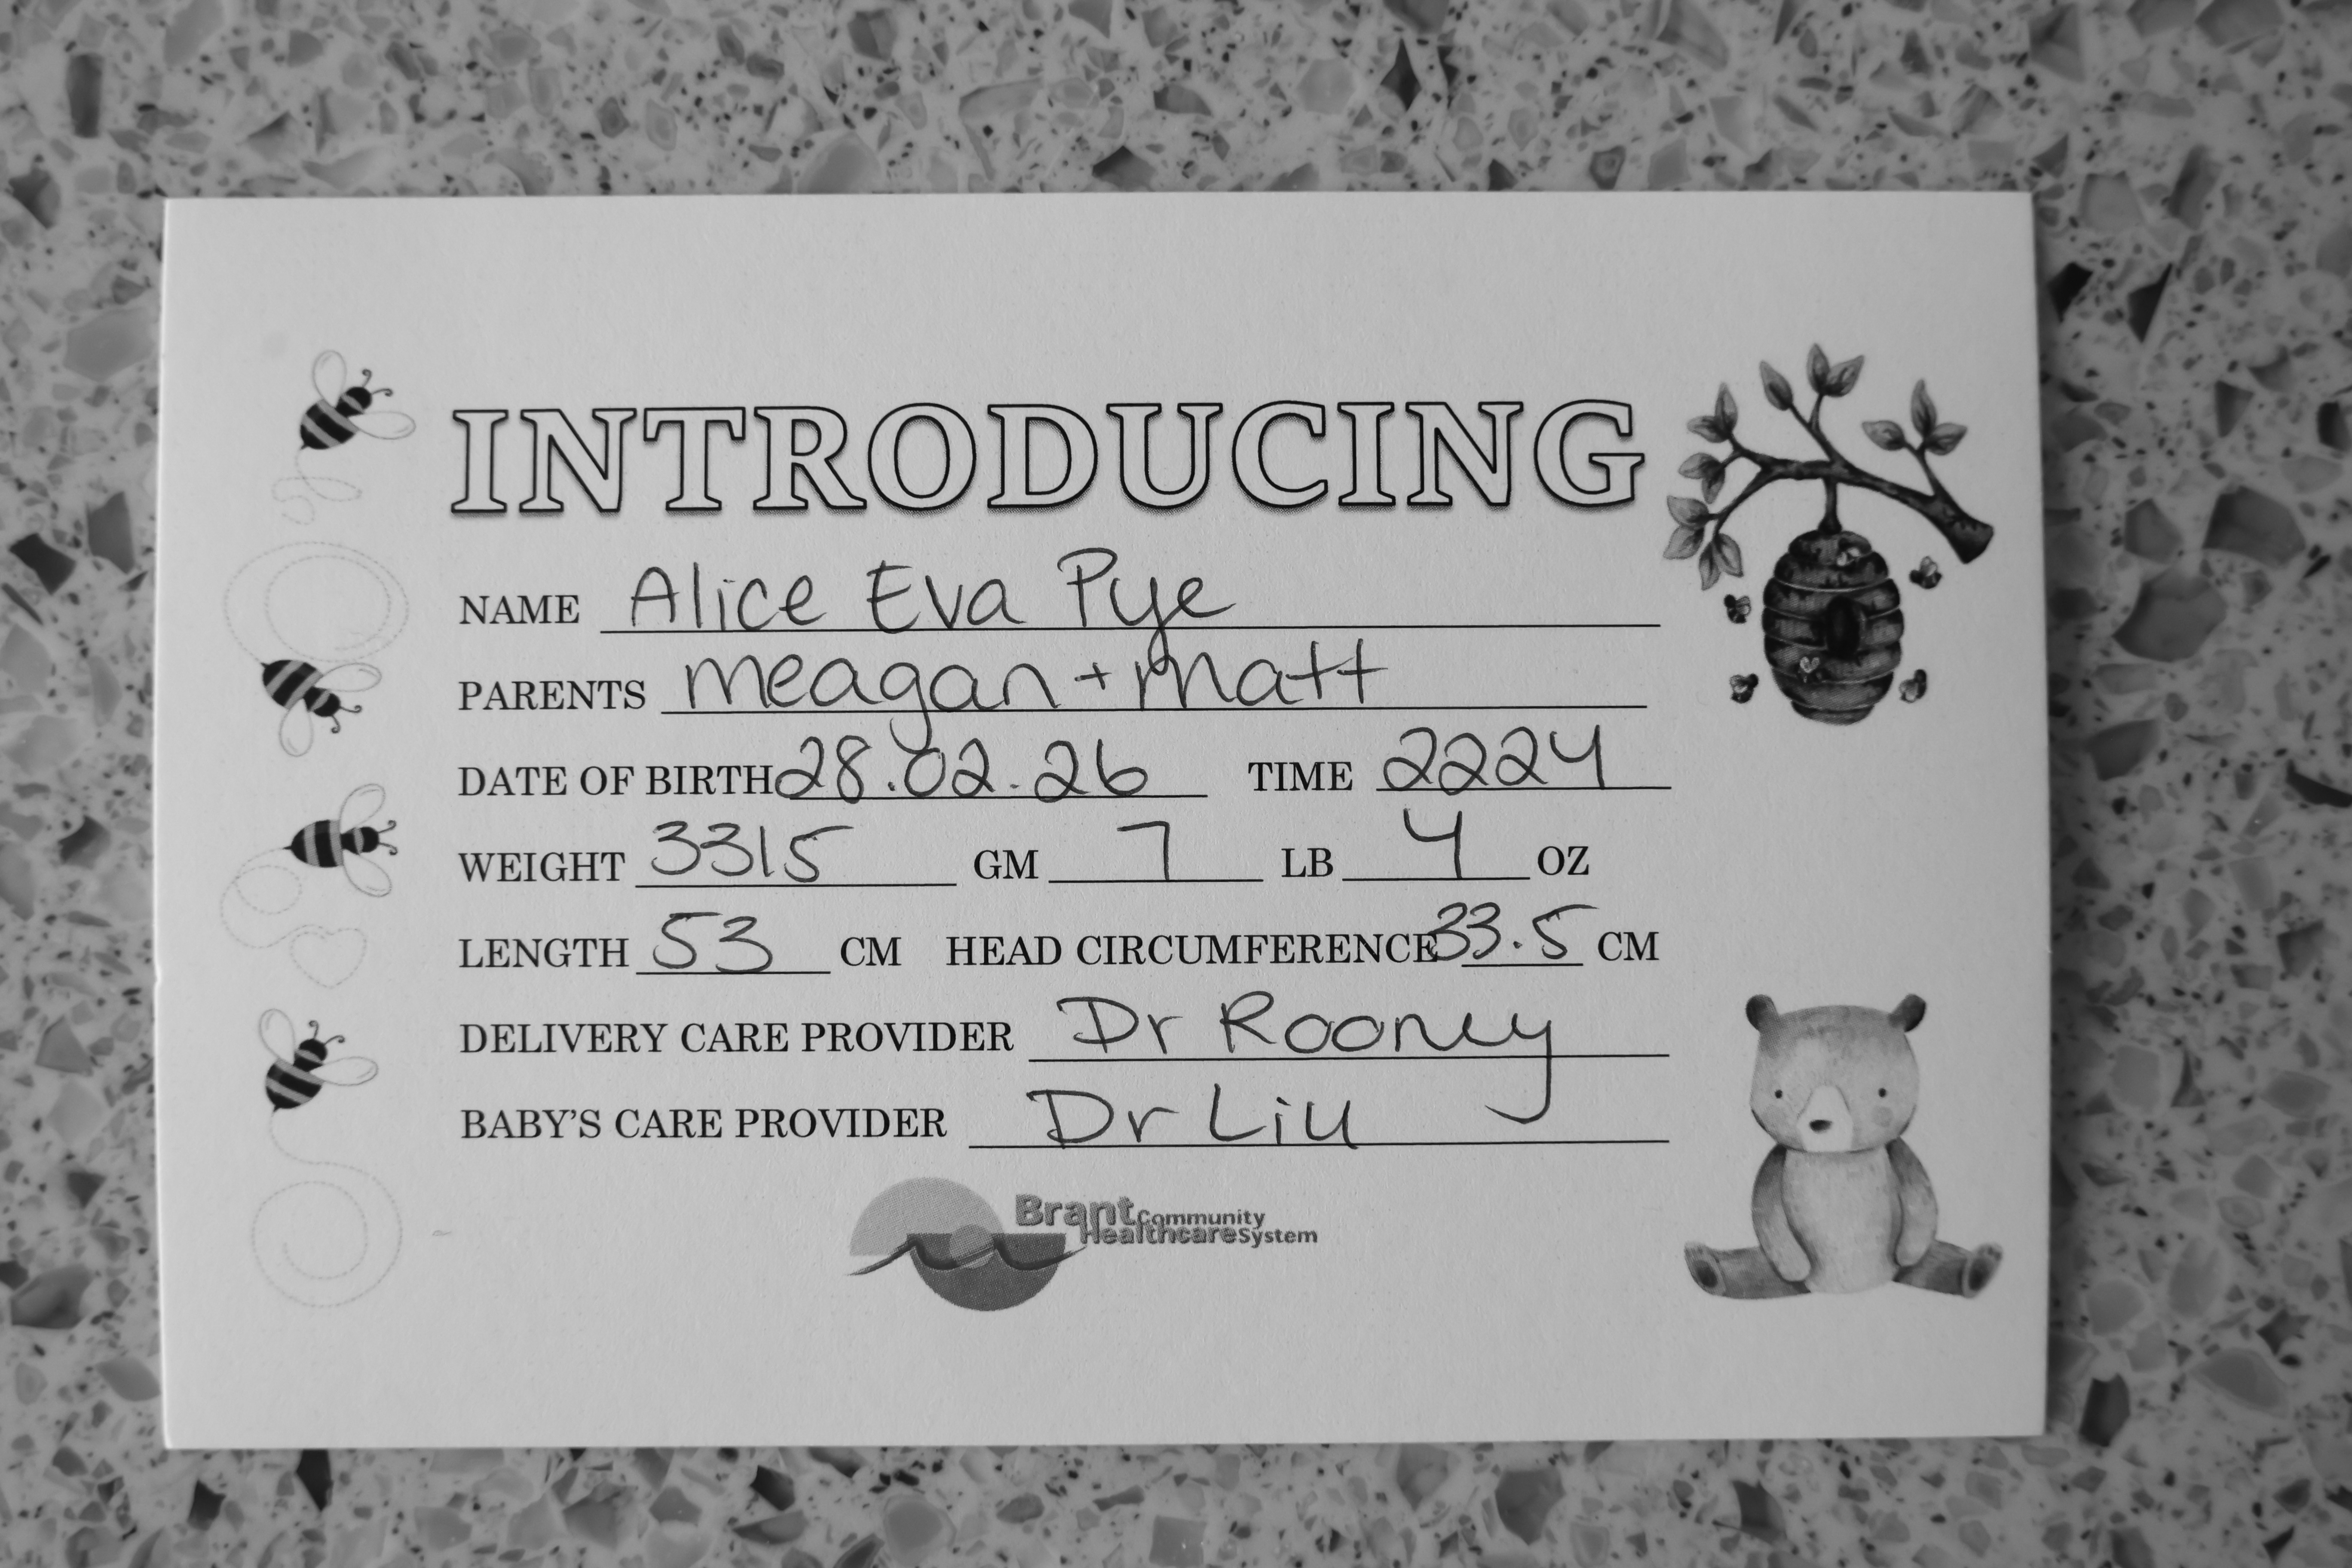 INTRODUCING
NAME Alice Eva Pye
PARENTS Meagan + Matt
DATE OF BIRTH 28.02.26 TIME 2224
WEIGHT 3315 GM 7 LB 4 OZ
LENGTH 53 CM HEAD CIRCUMFERENCE 33.5 CM
DELIVERY CARE PROVIDER Dr Rooney
BABY'S CARE PROVIDER Dr Liu
Brant Community
Healthcare System